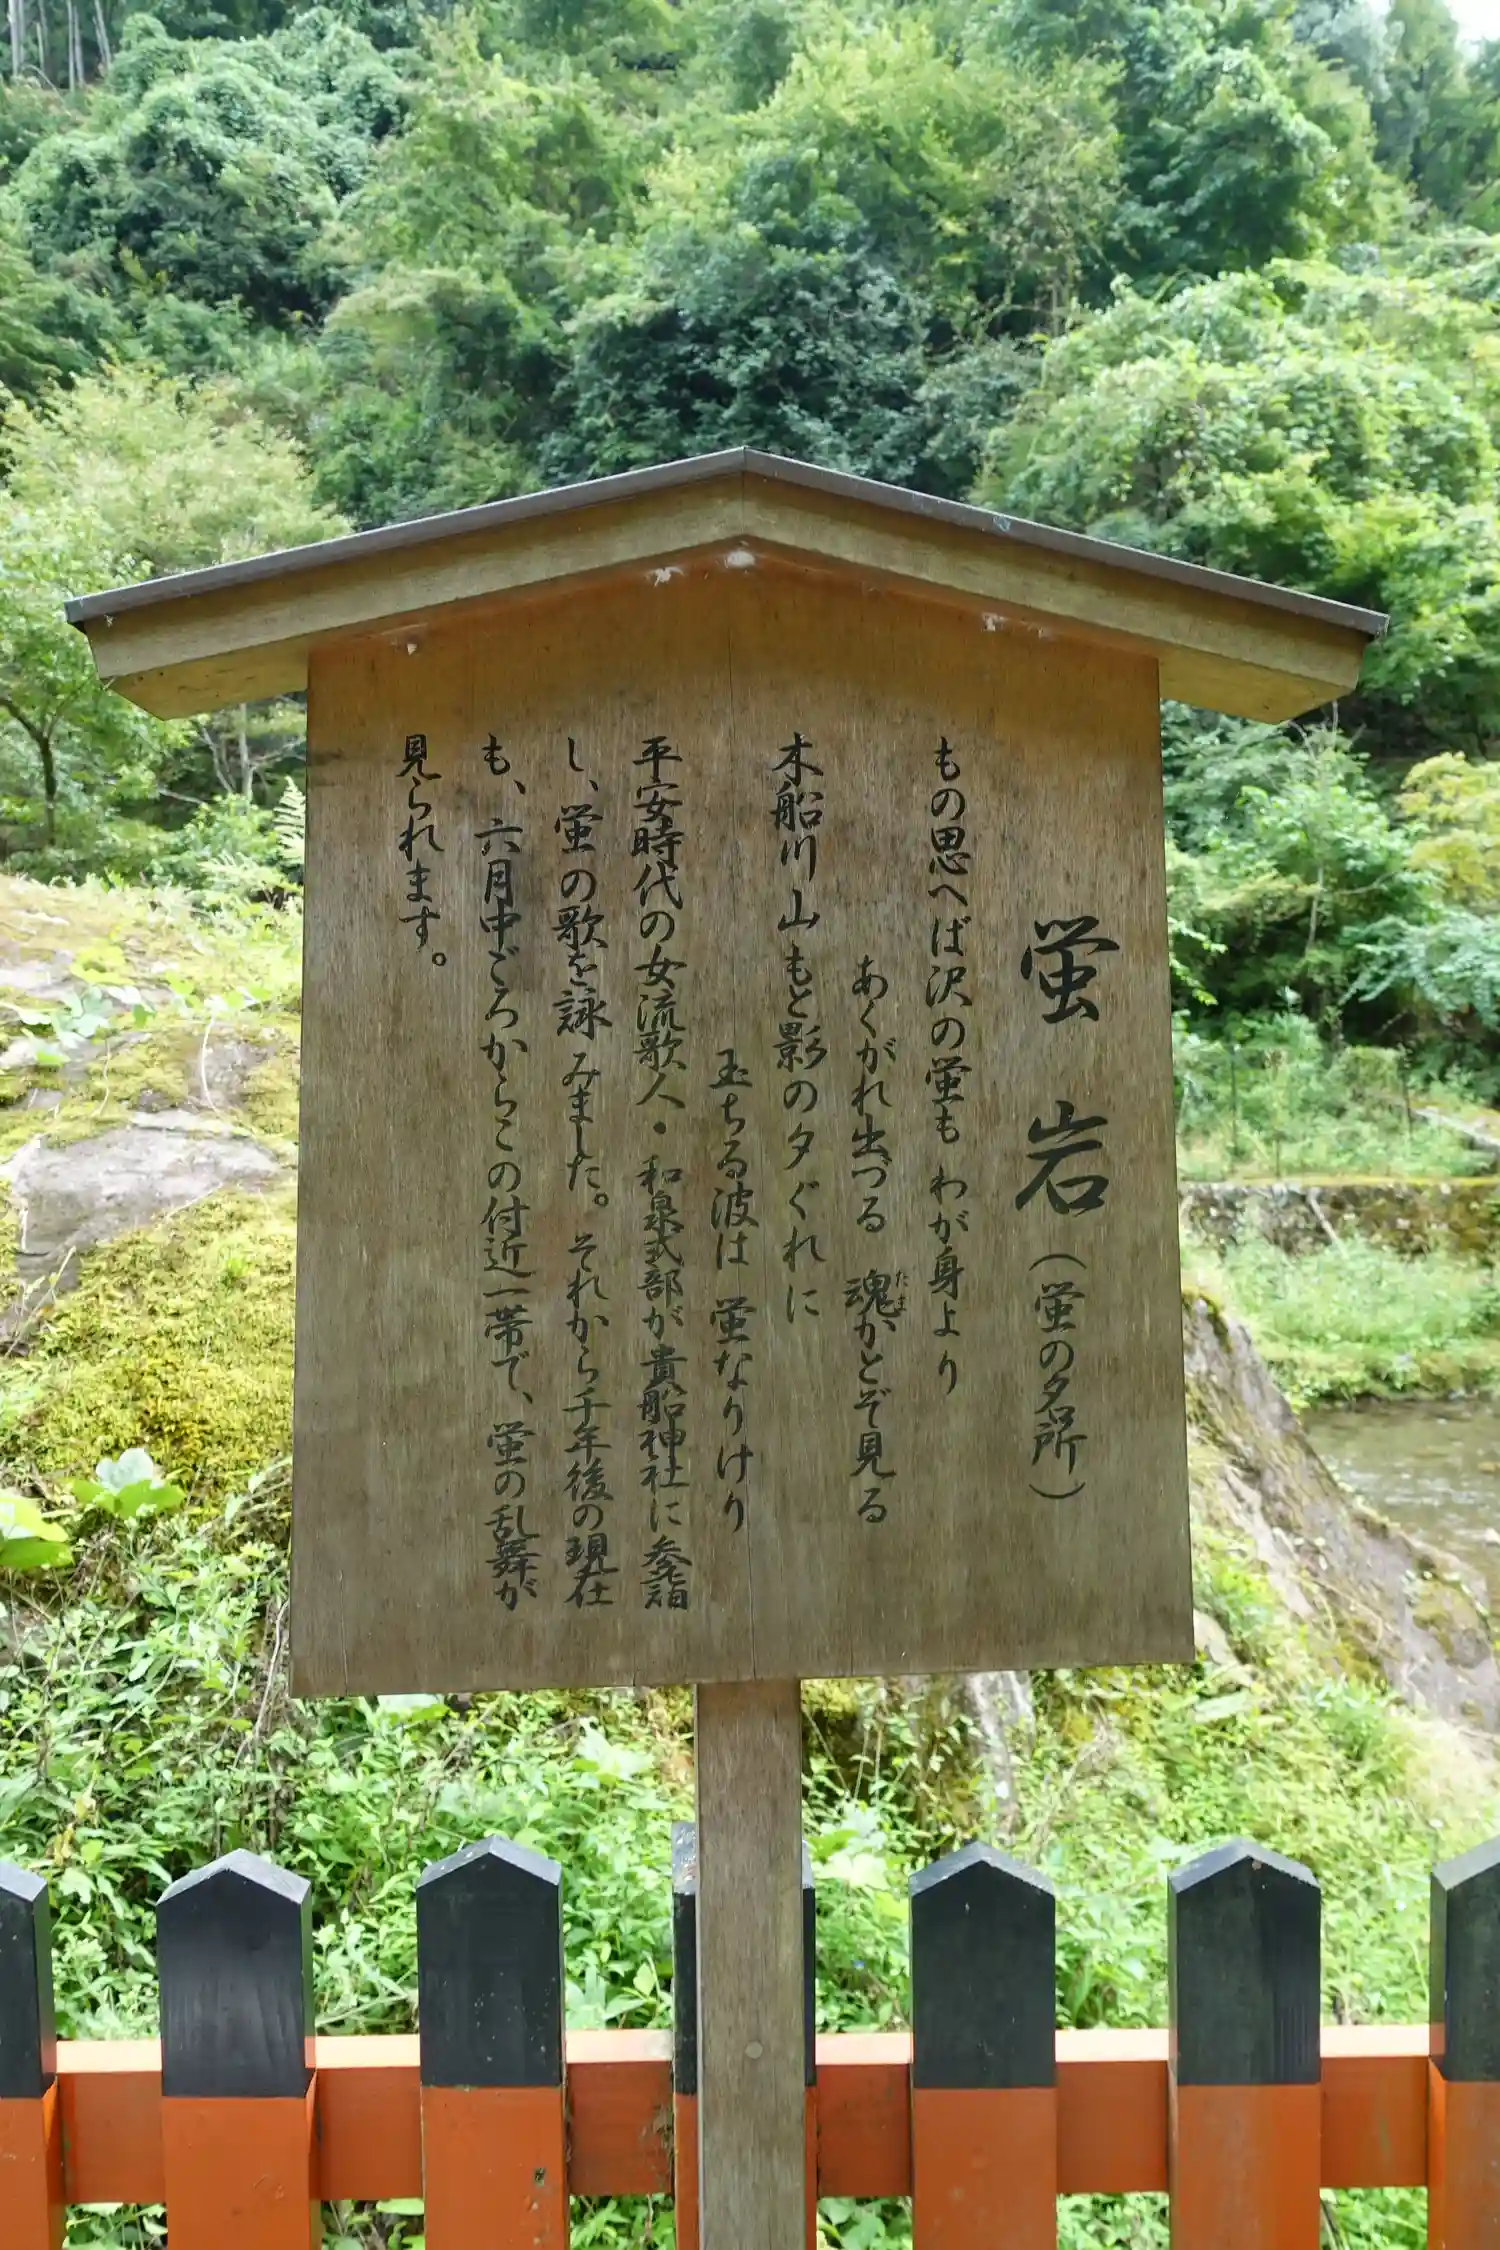 蛍岩（蛍の名所）
もの思へば沢の蛍も わが身より
あくがれ出づる 魂かとぞ見る
たま
木船川山もと影の夕ぐれに
玉ちる波は 蛍なりけり
平安時代の女流歌人・和泉式部が貴船神社に参詣
し、蛍の歌を詠みました。それから千年後の現在
も、六月中ごろからこの付近一帯で、蛍の乱舞が
見られます。